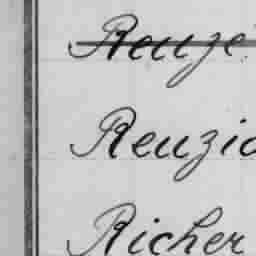 Renze
Renzio
Richer